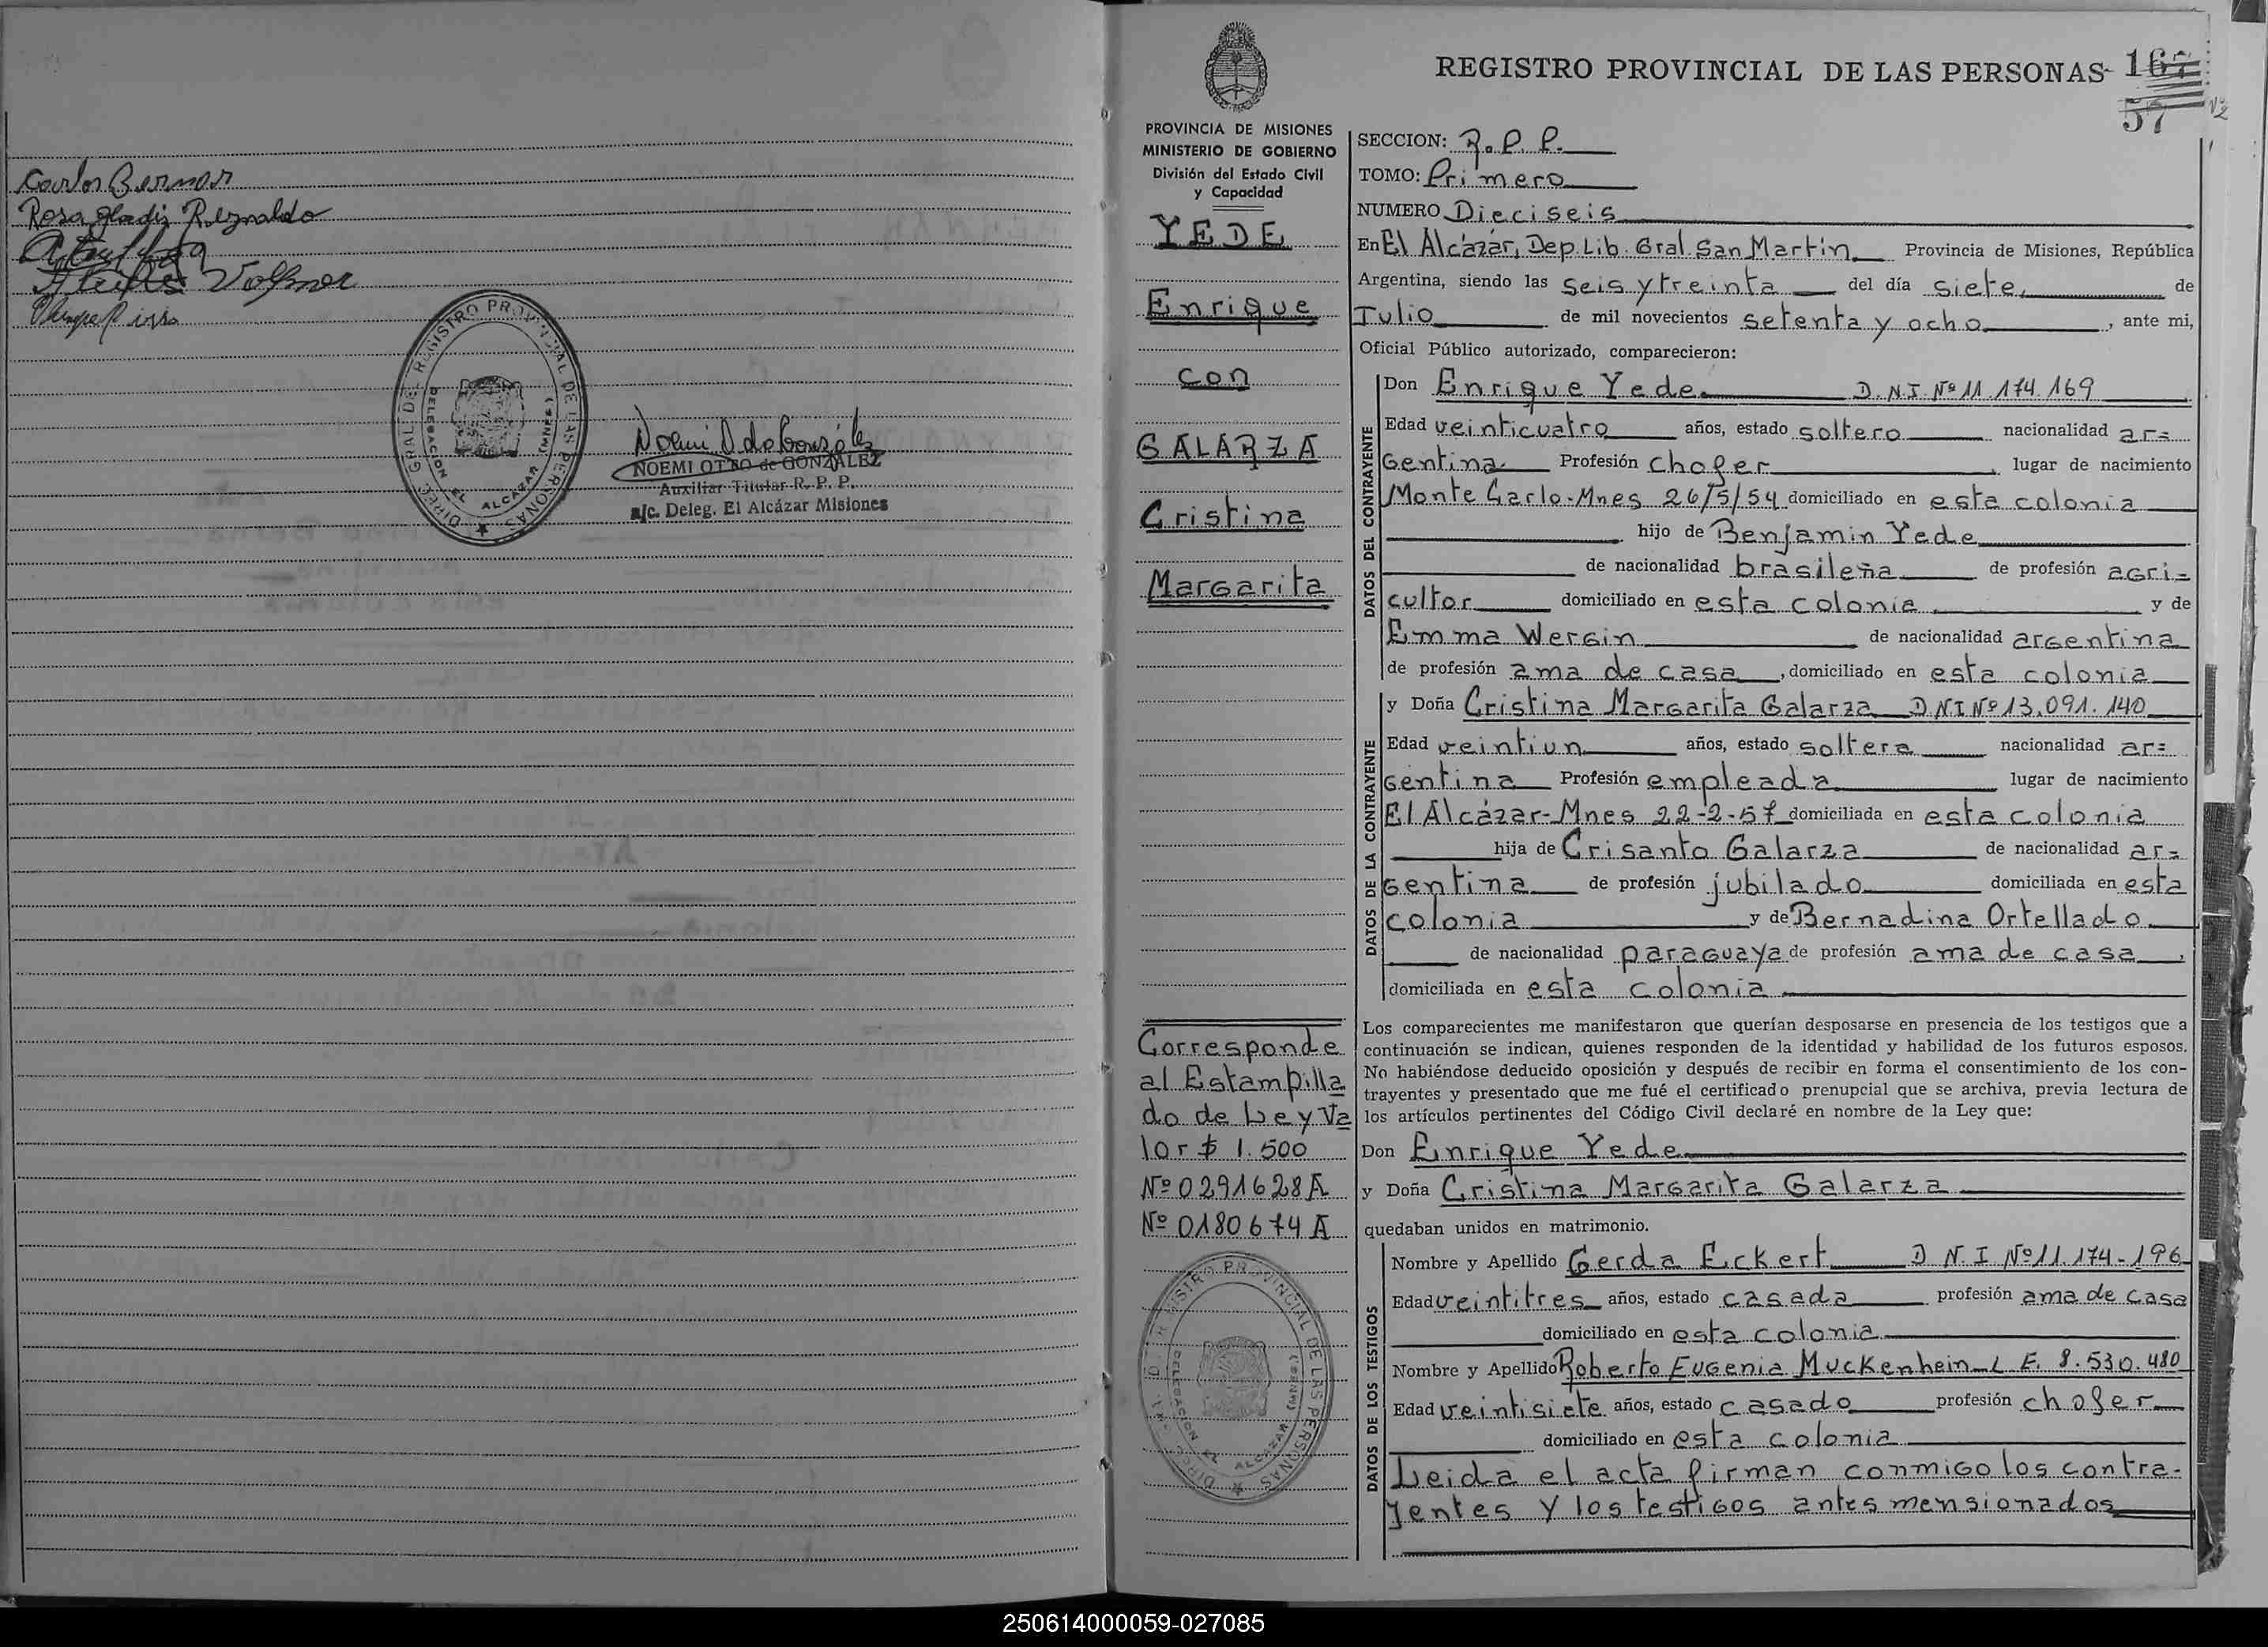 Carlos Bernar
Rosa gladis Reynaldo
Volmer
DIREC. GRAL. DEL REGISTRO PROVINCIAL DE LAS PERSONAS
DELEGACION EL ALCAZAR (MISIONES)
Noemi O de González
NOEMI OTTO de GONZALEZ
Auxiliar Titular R. P. P.
a/c. Deleg. El Alcázar Misiones
REGISTRO PROVINCIAL DE LAS PERSONAS
57
PROVINCIA DE MISIONES
MINISTERIO DE GOBIERNO
División del Estado Civil
y Capacidad
YEDE
Enrique
con
GALARZA
Cristina
Margarita
Corresponde
al Estampilla
do de Ley Va
lor $ 1.500
Nº 0291628A
Nº 0180674A
SECCION: R.P.P.
TOMO: Primero
NUMERO Dieciseis
En El Alcázar, Dep. Lib. Gral. San Martín Provincia de Misiones, República
Argentina, siendo las seis y treinta del día siete, de
Julio de mil novecientos setenta y ocho, ante mi,
Oficial Público autorizado, comparecieron:
DATOS DEL CONTRAYENTE
Don Enrique Yede D.N.I. Nº 11.174.169
Edad veinticuatro años, estado soltero nacionalidad ar=
gentina Profesión chofer, lugar de nacimiento
Monte Carlo-Mnes 26/5/54 domiciliado en esta colonia
hijo de Benjamin Yede
de nacionalidad brasileña de profesión agri=
cultor domiciliado en esta colonia y de
Emma Wergin de nacionalidad argentina
de profesión ama de casa, domiciliado en esta colonia
DATOS DE LA CONTRAYENTE
y Doña Cristina Margarita Galarza DNI Nº 13.091.140
Edad veintiun años, estado soltera nacionalidad ar=
gentina Profesión empleada lugar de nacimiento
El Alcázar-Mnes 22-2-57 domiciliada en esta colonia
hija de Crisanto Galarza de nacionalidad ar=
gentina de profesión jubilado domiciliada en esta
colonia y de Bernadina Ortellado
de nacionalidad paraguaya de profesión ama de casa,
domiciliada en esta colonia
Los comparecientes me manifestaron que querían desposarse en presencia de los testigos que a
continuación se indican, quienes responden de la identidad y habilidad de los futuros esposos.
No habiéndose deducido oposición y después de recibir en forma el consentimiento de los con-
trayentes y presentado que me fué el certificado prenupcial que se archiva, previa lectura de
los artículos pertinentes del Código Civil declaré en nombre de la Ley que:
Don Enrique Yede
y Doña Cristina Margarita Galarza
quedaban unidos en matrimonio.
DATOS DE LOS TESTIGOS
Nombre y Apellido Gerda Eckert D.N.I. Nº 11.174-196
Edad veintitres años, estado casada profesión ama de casa
domiciliado en esta colonia
Nombre y Apellido Roberto Eugenia Muckenhein L E. 8.530.480
Edad veintisiete años, estado casado profesión chofer
domiciliado en esta colonia
Leida el acta firman conmigo los contra-
yentes y los testigos antes mensionados
DIREC. GRAL. DEL REGISTRO PROVINCIAL DE LAS PERSONAS
DELEGACION EL ALCAZAR (MISIONES)
250614000059-027085